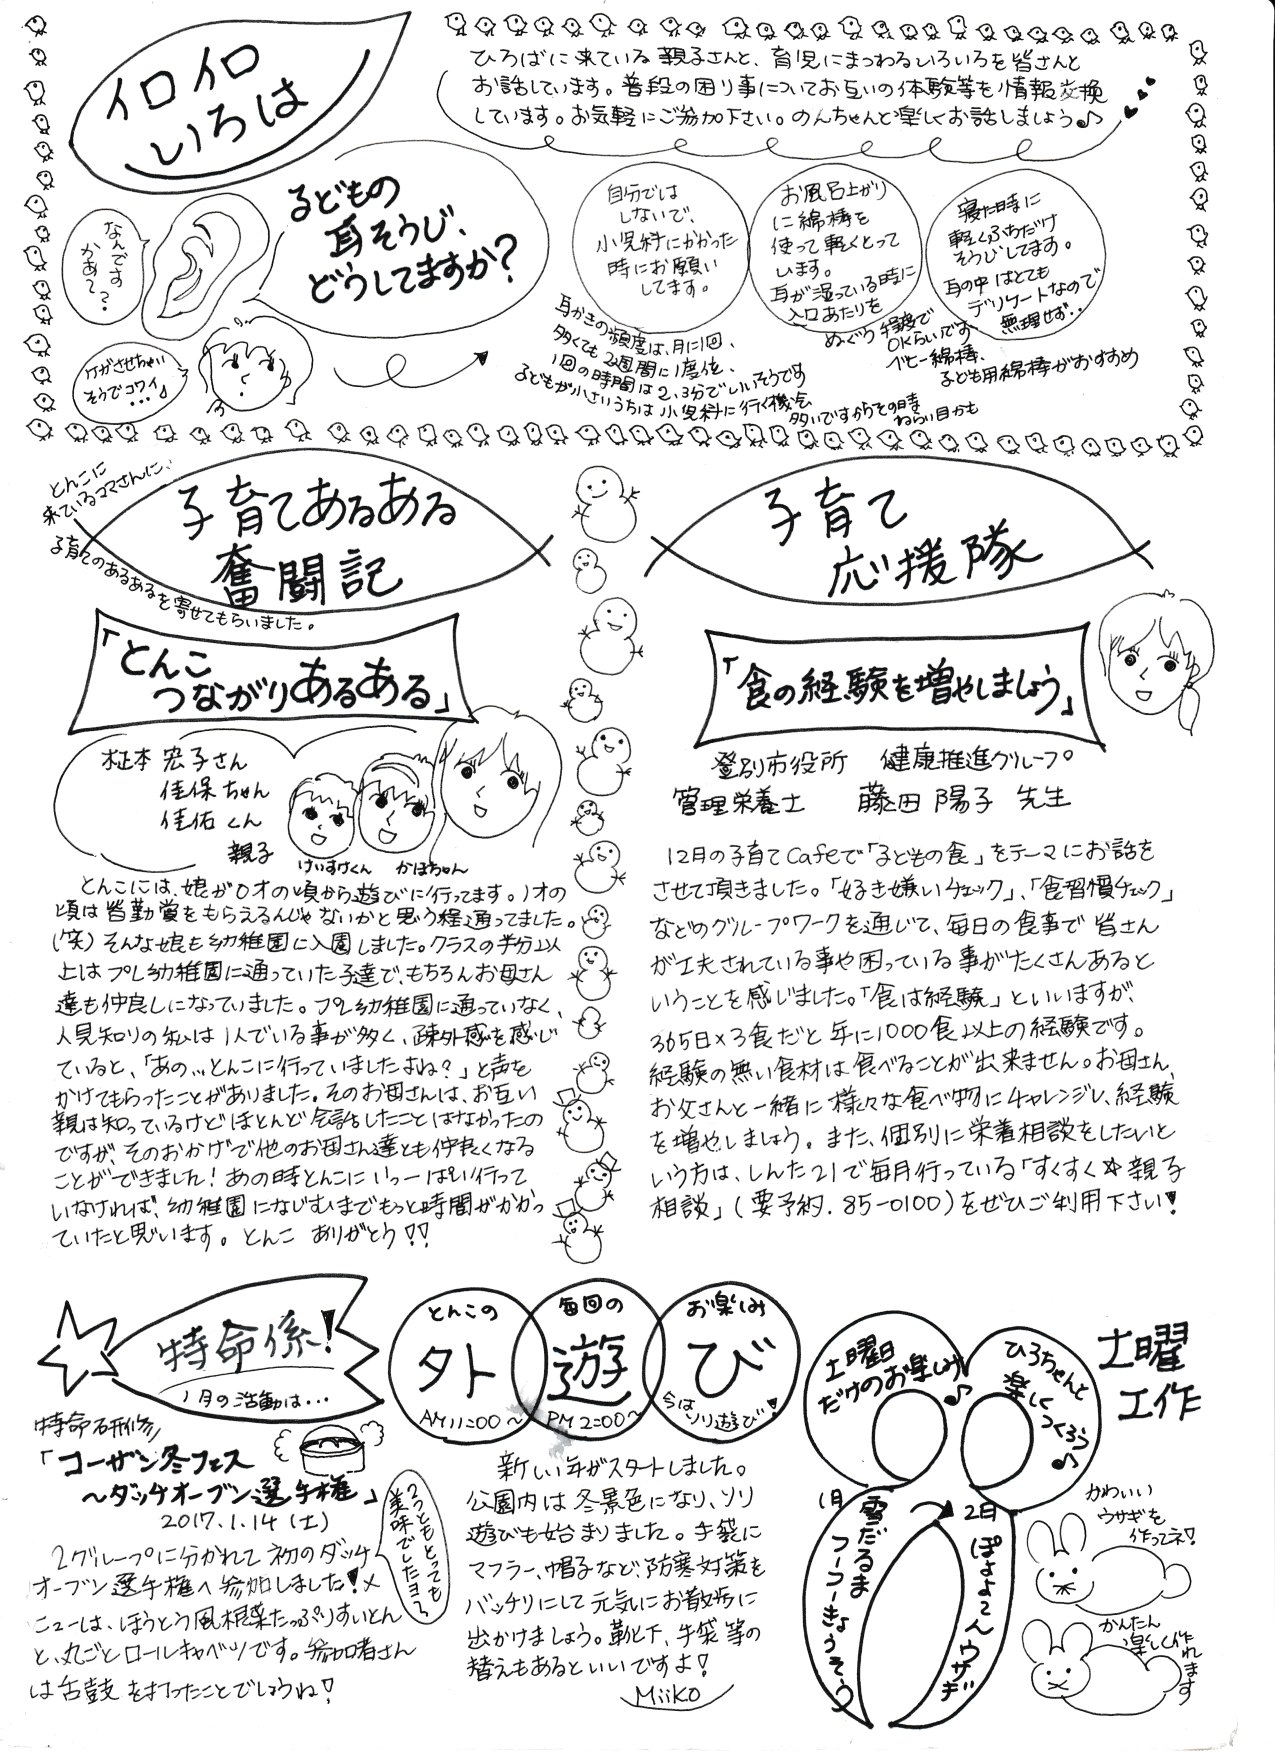 イロイロ
いろは
ひろばに来ている親子さんと、育児にまつわるいろいろを皆さんと
お話しています。普段の困り事についてお互いの体験等を情報交換
しています。お気軽にご参加下さい。のんちゃんと楽しくお話しましょう♪
なんです
かあ〜?
子どもの
耳そうじ、
どうしてますか?
ケガさせちゃい
そうでコワイ
・・・♪
自分では
しないで、
小児科にかかった
時にお願い
してます。
お風呂上がり
に綿棒を
使って軽くとって
います。
耳が湿っている時に
入口あたりを
ぬぐう程度で
OKらいです
ベビー綿棒、
子ども用綿棒がおすすめ
寝た時に
軽くふちだけ
そうじしてます。
耳の中はとても
デリケートなので
無理せず・・
耳かきの頻度は、月に1回、
多くても2週間に1度位、
1回の時間は2、3分でいいそうです
子どもが小さいうちは小児科に行く機会
多いですからその時
ねらい目かも
とんこに
来ているママさんに、
子育てのあるあるを寄せてもらいました。
子育てあるある
奮闘記
「とんこ
つながりあるある」
柾本 宏子さん
佳保ちゃん
佳佑くん
親子
けいすけくん かほちゃん
とんこには、娘が0才の頃から遊びに行ってます。1才の
頃は皆勤賞をもらえるんじゃないかと思う程通ってました。
(笑)そんな娘も幼稚園に入園しました。クラスの半分以
上はプレ幼稚園に通っていた子達で、もちろんお母さん
達も仲良しになっていました。プレ幼稚園に通っていなく、
人見知りの私は1人でいる事が多く、疎外感を感じ
ていると、「あの…とんこに行っていましたよね?」と声を
かけてもらったことがありました。そのお母さんは、お互い
親は知っているけどほとんど会話したことはなかったの
ですが、そのおかげで他のお母さん達とも仲良くなる
ことができました!あの時とんこにいっーぱい行って
いなければ、幼稚園になじむまでもっと時間がかかっ
ていたと思います。とんこ ありがとう!!
子育て
応援隊
「食の経験を増やしましょう」
登別市役所 健康推進グループ
管理栄養士 藤田 陽子 先生
12月の子育てCafeで「子どもの食」をテーマにお話を
させて頂きました。「好き嫌いチェック」、「食習慣チェック」
などのグループワークを通じて、毎日の食事で皆さん
が工夫されている事や困っている事がたくさんあると
いうことを感じました。「食は経験」といいますが、
365日×3食だと年に1000食以上の経験です。
経験の無い食材は食べることが出来ません。お母さん、
お父さんと一緒に様々な食べ物にチャレンジし、経験
を増やしましょう。また、個別に栄養相談をしたいと
いう方は、しんた21で毎月行っている「すくすく☆親子
相談」(要予約.85-0100)をぜひご利用下さい!
特命係!
1月の活動は…
特命研修
「コーザン冬フェス
〜ダッチオーブン選手権」
2017.1.14(土)
2つともとっても
美味でしたヨ〜
2グループに分かれて初のダッチ
オーブン選手権へ参加しました!メ
ニューは、ほうとう風根菜たっぷりすいとん
と、丸ごとロールキャベツです。参加者さん
は舌鼓を打ったことでしょうね!
とんこの
外
AM11:00〜
毎回の
遊
PM2:00〜
お楽しみ
び
今はソリ遊び!
新しい年がスタートしました。
公園内は冬景色になり、ソリ
遊びも始まりました。手袋に
マフラー、帽子など、防寒対策を
バッチリにして元気にお散歩に
出かけましょう。靴下、手袋等の
替えもあるといいですよ!
Miiko
土曜日
だけのお楽しみ♪
ひろちゃんと
楽しく
つくろう♪
土曜
工作
1月
雪だるま
フーフーきょうそう
2月
ぽよよ〜んウサギ
かわいい
ウサギを
作ってネ!
かんたん
楽しく作
れます